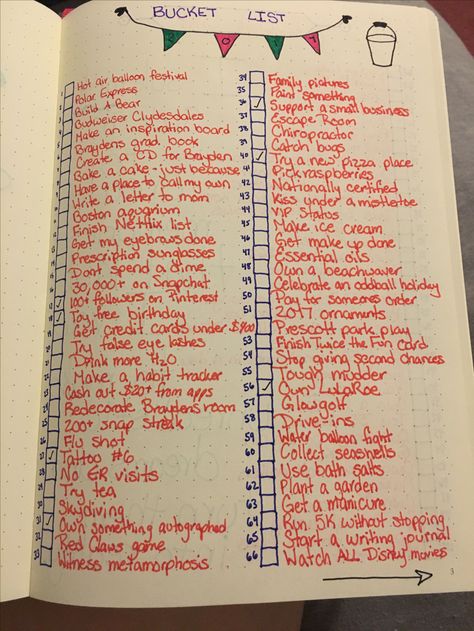 BUCKET LIST
2017
1 Hot air balloon festival
2 Polar Express
3 Build A Bear
4 Budweiser Clydesdales
5 Make an inspiration board
6 Braydens grad. book
7 Create a CD for Brayden
8 Bake a cake - just because
9 Have a place to call my own
10 Write a letter to mom
11 Boston aquarium
12 Finish Netflix list
13 Get my eyebrows done
14 Prescription sunglasses
15 Dont spend a dime
16 30,000+ on Snapchat
17 100+ followers on Pinterest
18 Toy free birthday
19 Get credit cards under $900
20 Try false eye lashes
21 Drink more H2O
22 Make a habit tracker
23 Cash out $20+ from apps
24 Redecorate Brayden's room
25 200+ snap streak
26 Flu shot
27 Tattoo #6
28 No ER visits
29 Try tea
30 Skydiving
31 Own something autographed
32 Red Claws game
33 Witness metamorphosis
34 Family pictures
35 Paint something
36 Support a small business
37 Escape Room
38 Chiropractor
39 Catch bugs
40 Try a new pizza place
41 Pick raspberries
42 Nationally certified
43 Kiss under a mistletoe
44 VIP status
45 Make ice cream
46 Get make up done
47 Essential oils
48 Own a beachwaver
49 Celebrate an oddball holiday
50 Pay for someones order
51 2017 ornaments
52 Prescott park play
53 Finish Twice the Fun card
54 Stop giving second chances
55 Tough mudder
56 Own LulaRoe
57 Glowgolf
58 Drive-ins
59 Water balloon fight
60 Collect seashells
61 Use bath salts
62 Plant a garden
63 Get a manicure
64 Run 5K without stopping
65 Start a writing journal
66 Watch ALL Disney movies
3